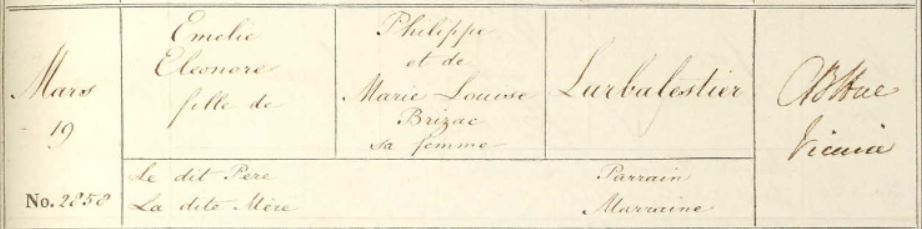 Mars
19
No. 2858
Emelie
Eleonore
fille de
Philippe
et de
Marie Louise
Brizac
sa femme
Larbalestier
Hue
Vicaire
Le dit Père
La dite Mère
Parrain
Marraine